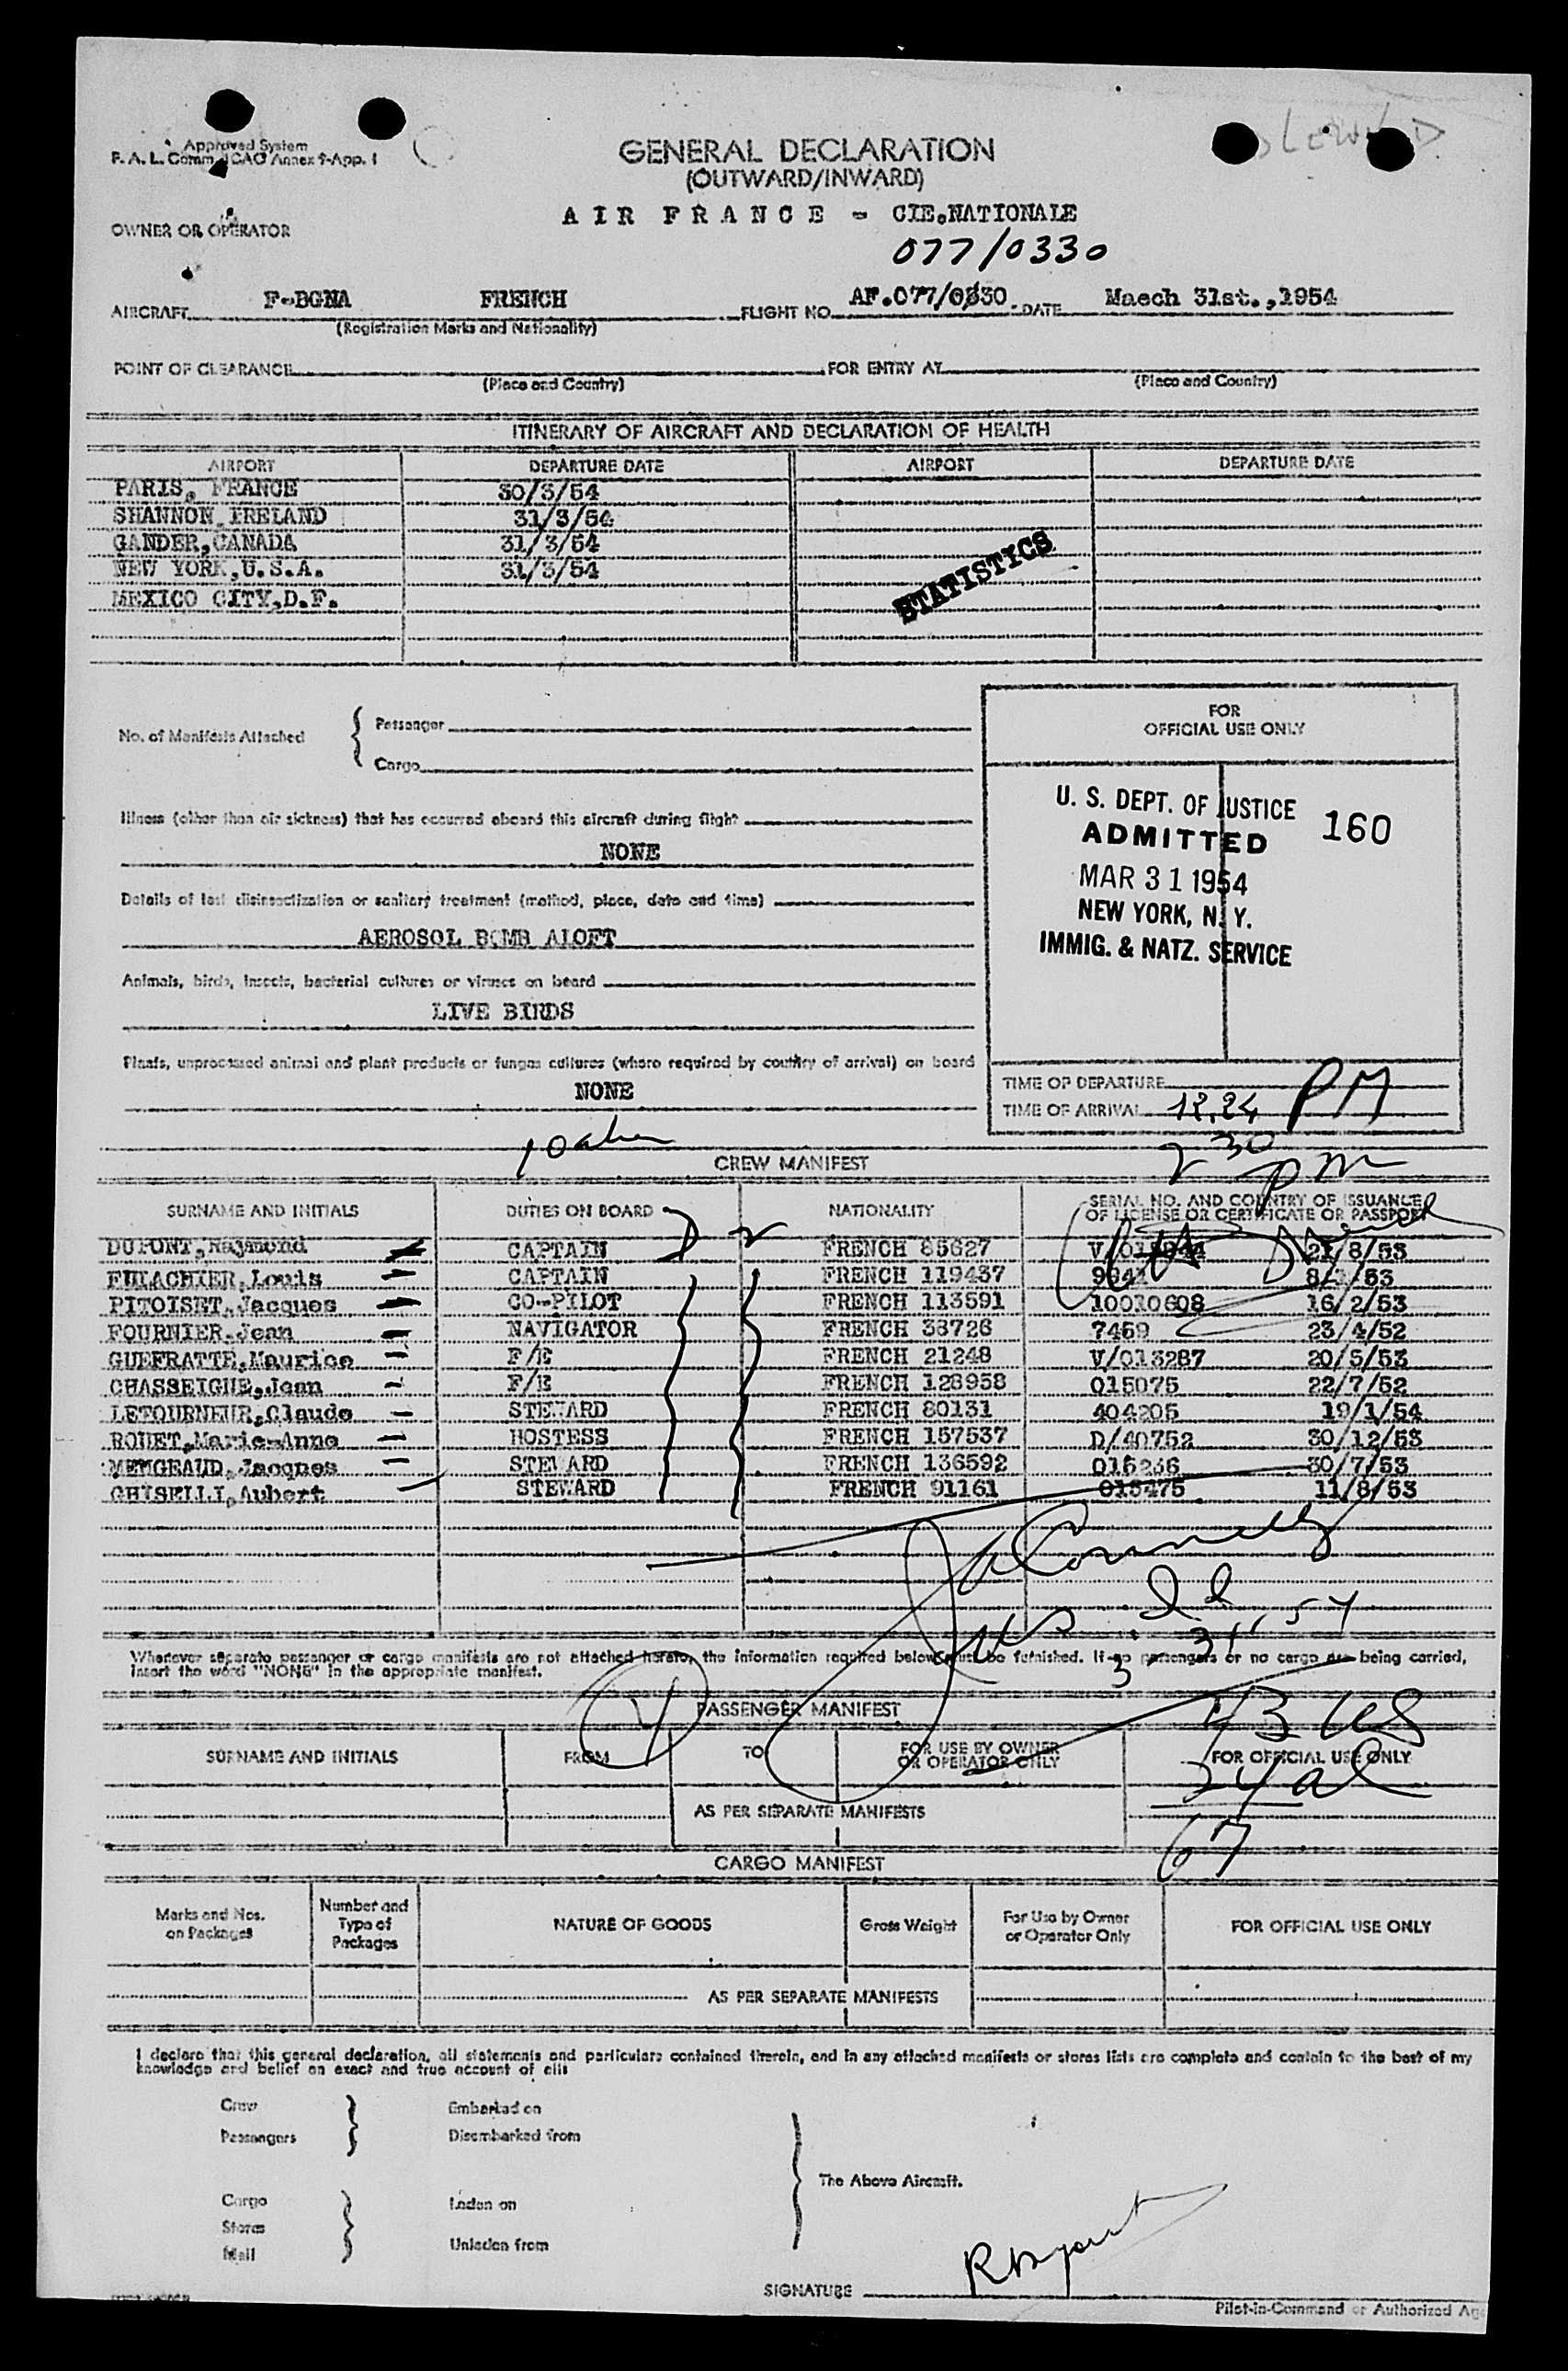 Approved System
F. A. L. Comm. ICAO Annex 9-App. 1
GENERAL DECLARATION
(OUTWARD/INWARD)
OWNER OR OPERATOR
A I R F R A N C E - CIE.NATIONALE
077/0330
AIRCRAFT F-BGNA FRENCH FLIGHT NO. AF.077/0330 DATE Maech 31st.,1954
(Registration Marks and Nationality)
POINT OF CLEARANCE FOR ENTRY AT
(Place and Country) (Place and Country)
ITINERARY OF AIRCRAFT AND DECLARATION OF HEALTH
AIRPORT DEPARTURE DATE AIRPORT DEPARTURE DATE
PARIS, FRANCE 30/3/54
SHANNON, IRELAND 31/3/54
GANDER,CANADA 31/3/54
NEW YORK,U.S.A. 31/3/54
MEXICO CITY,D.F.
STATISTICS
No. of Manifests Attached
Passenger
Cargo
FOR
OFFICIAL USE ONLY
U. S. DEPT. OF JUSTICE 160
ADMITTED
MAR 31 1954
NEW YORK, N. Y.
IMMIG. & NATZ. SERVICE
Illness (other than air sickness) that has occurred aboard this aircraft during flight
NONE
Details of last disinsectization or sanitary treatment (method, place, date and time)
AEROSOL BOMB ALOFT
Animals, birds, insects, bacterial cultures or viruses on board
LIVE BIRDS
Plants, unprocessed animal and plant products or fungus cultures (where required by country of arrival) on board
NONE
TIME OF DEPARTURE
TIME OF ARRIVAL 12.24 PM
2 30 pm
CREW MANIFEST
SURNAME AND INITIALS DUTIES ON BOARD NATIONALITY SERIAL NO. AND COUNTRY OF ISSUANCE OF LICENSE OR CERTIFICATE OR PASSPORT
DUPONT,Raymond CAPTAIN FRENCH 85627 21/8/53
FULACHIER,Louis CAPTAIN FRENCH 119437
PITOISET,Jacques CO-PILOT FRENCH 113591 10010608 16/2/53
FOURNIER,Jean NAVIGATOR FRENCH 38726 7469 23/4/52
GUEFRATTE,Maurice F/E FRENCH 21248 V/013287 20/5/53
CHASSEIGNE,Jean F/E FRENCH 128958 015075 22/7/52
LETOURNEUR,Claude STEWARD FRENCH 80131 404205 19/1/54
ROUET,Marie-Anne HOSTESS FRENCH 157537 D/40752 30/12/53
MENGEAUD,Jacques STEWARD FRENCH 136592 015236 30/7/53
GHISELLI,Aubert STEWARD FRENCH 91161 015475 11/8/53
Whenever separate passenger or cargo manifests are not attached hereto, the information required below must be furnished. If no passengers or no cargo are being carried,
insert the word "NONE" in the appropriate manifest.
PASSENGER MANIFEST
SURNAME AND INITIALS FROM TO FOR USE BY OWNER OR OPERATOR ONLY FOR OFFICIAL USE ONLY
67
AS PER SEPARATE MANIFESTS
CARGO MANIFEST
Marks and Nos. on Packages Number and Type of Packages NATURE OF GOODS Gross Weight For Use by Owner or Operator Only FOR OFFICIAL USE ONLY
AS PER SEPARATE MANIFESTS
I declare that this general declaration, all statements and particulars contained therein, and in any attached manifests or stores lists are complete and contain to the best of my
knowledge and belief an exact and true account of all:
Crew Embarked on
Passengers Disembarked from
The Above Aircraft.
Cargo Laden on
Stores
Mail Unladen from
SIGNATURE
Pilot-in-Command or Authorized